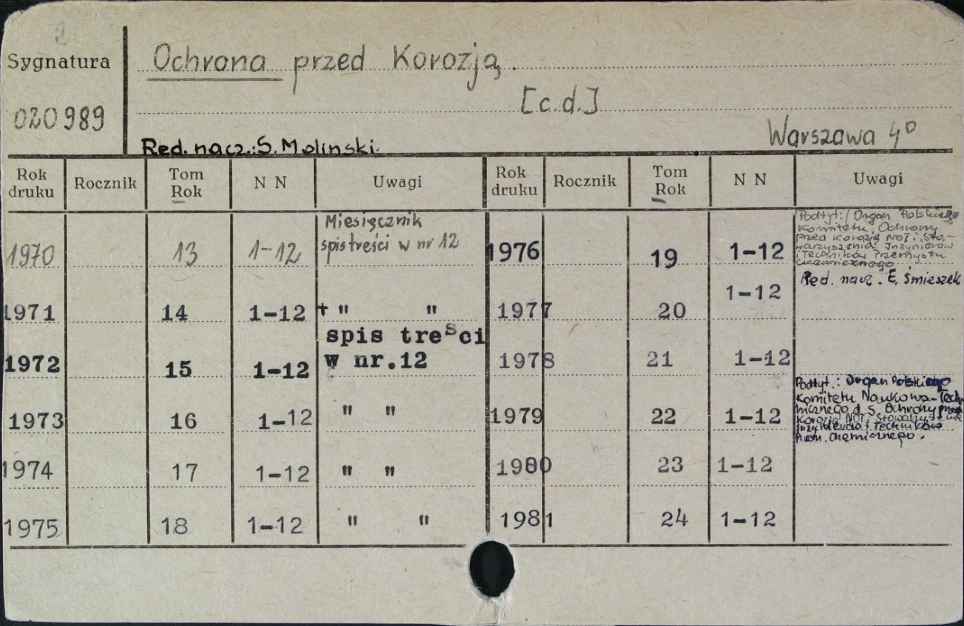 Sygnatura
Ochrona przed Korozją.
[c.d.]
020989
Warszawa 4⁰
Red. nacz.: S. Moliński.
Rok druku Rocznik Tom Rok N N Uwagi Rok druku Rocznik Tom Rok N N Uwagi
1970 13 1-12 Miesięcznik spis treści w nr 12 1976 19 1-12 Podtyt.: Organ Polskiego
Komitetu Ochrony
przed Korozją NOT i Sto-
warzyszenia Inżynierów
i Techników Przemysłu
Chemicznego.
Red. nacz. E. Śmieszek
1971 14 1-12 + " " 1977 20 1-12
1972 15 1-12 spis treści w nr.12 1978 21 1-12
1973 16 1-12 " " 1979 22 1-12 Podtyt.: Organ Polskiego
Komitetu Naukowo-Tech-
nicznego d.s. Ochrony przed
Korozją NOT, Stowarzysz.
i Techników
chemicznego.
1974 17 1-12 " " 1980 23 1-12
1975 18 1-12 " " 1981 24 1-12